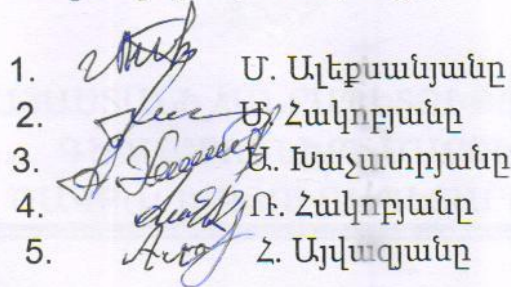 1. Մ. Ալեքսանյանը
2. Հակոբյանը
3. Ա. Խաչատրյանը
4. Ռ. Հակոբյանը
5. Հ. Այվազյանը